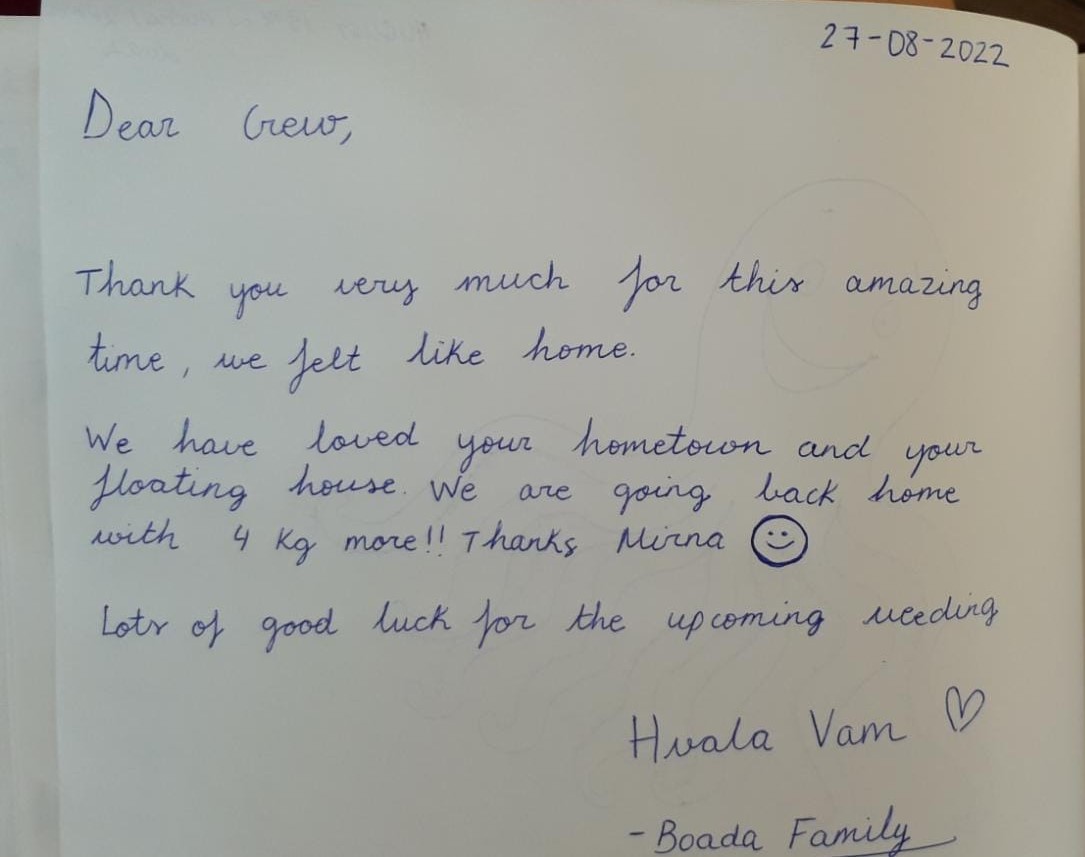 27-08-2022
Dear Crew,
Thank you very much for this amazing
time, we felt like home.
We have loved your hometown and your
floating house. We are going back home
with 4 Kg more!! Thanks Mirna ☺
Lots of good luck for the upcoming weeding
Hvala Vam ♡
- Boada Family